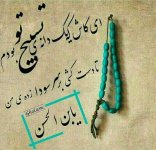 ای کاش یک دانه ی تسبیح تو بودم
تا دست کشی بر سر سودا زده ی من
یابن الحسن